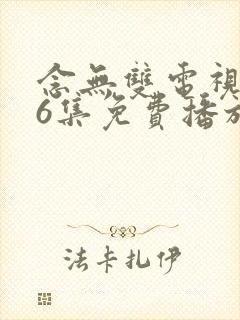 念無雙電視
6集免費播放
法卡扎伊